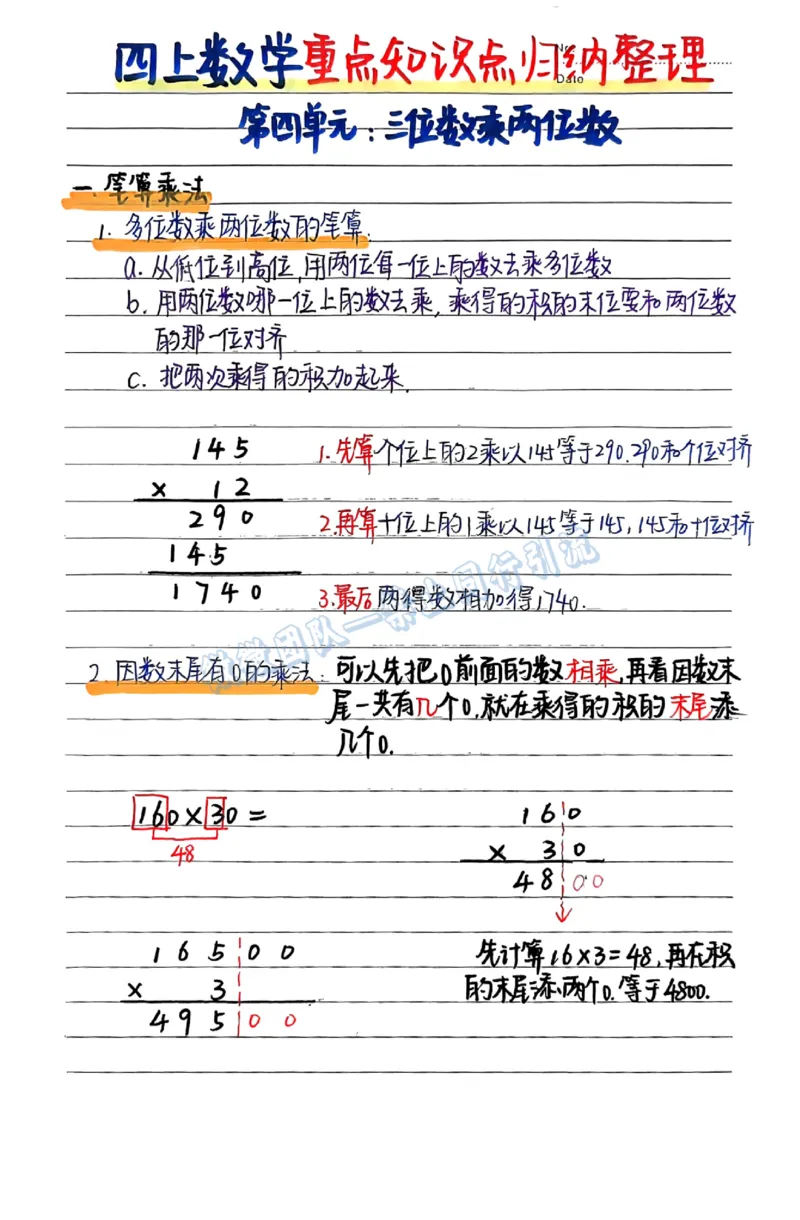 四上数学重点知识点归纳整理
No.
Date
第四单元：三位数乘两位数
一.笔算乘法
1. 多位数乘两位数的笔算：
a. 从低位到高位,用两位每一位上的数去乘多位数
b. 用两位数哪一位上的数去乘, 乘得的积的末位要和两位数
的那一位对齐
c. 把两次乘得的积加起来.
145
× 12
290
145
1740
1.先算个位上的2乘以145等于290.290和个位对齐
2.再算十位上的1乘以145等于145,145和十位对齐
3.最后两得数相加得1740.
2.因数末尾有0的乘法：可以先把0前面的数相乘,再看因数末
尾一共有几个0,就在乘得的积的末尾添
几个0.
160×30=
48
160
× 30
4800
16500
× 3
49500
先计算16×3=48,再在积
的末尾添两个0.等于4800.